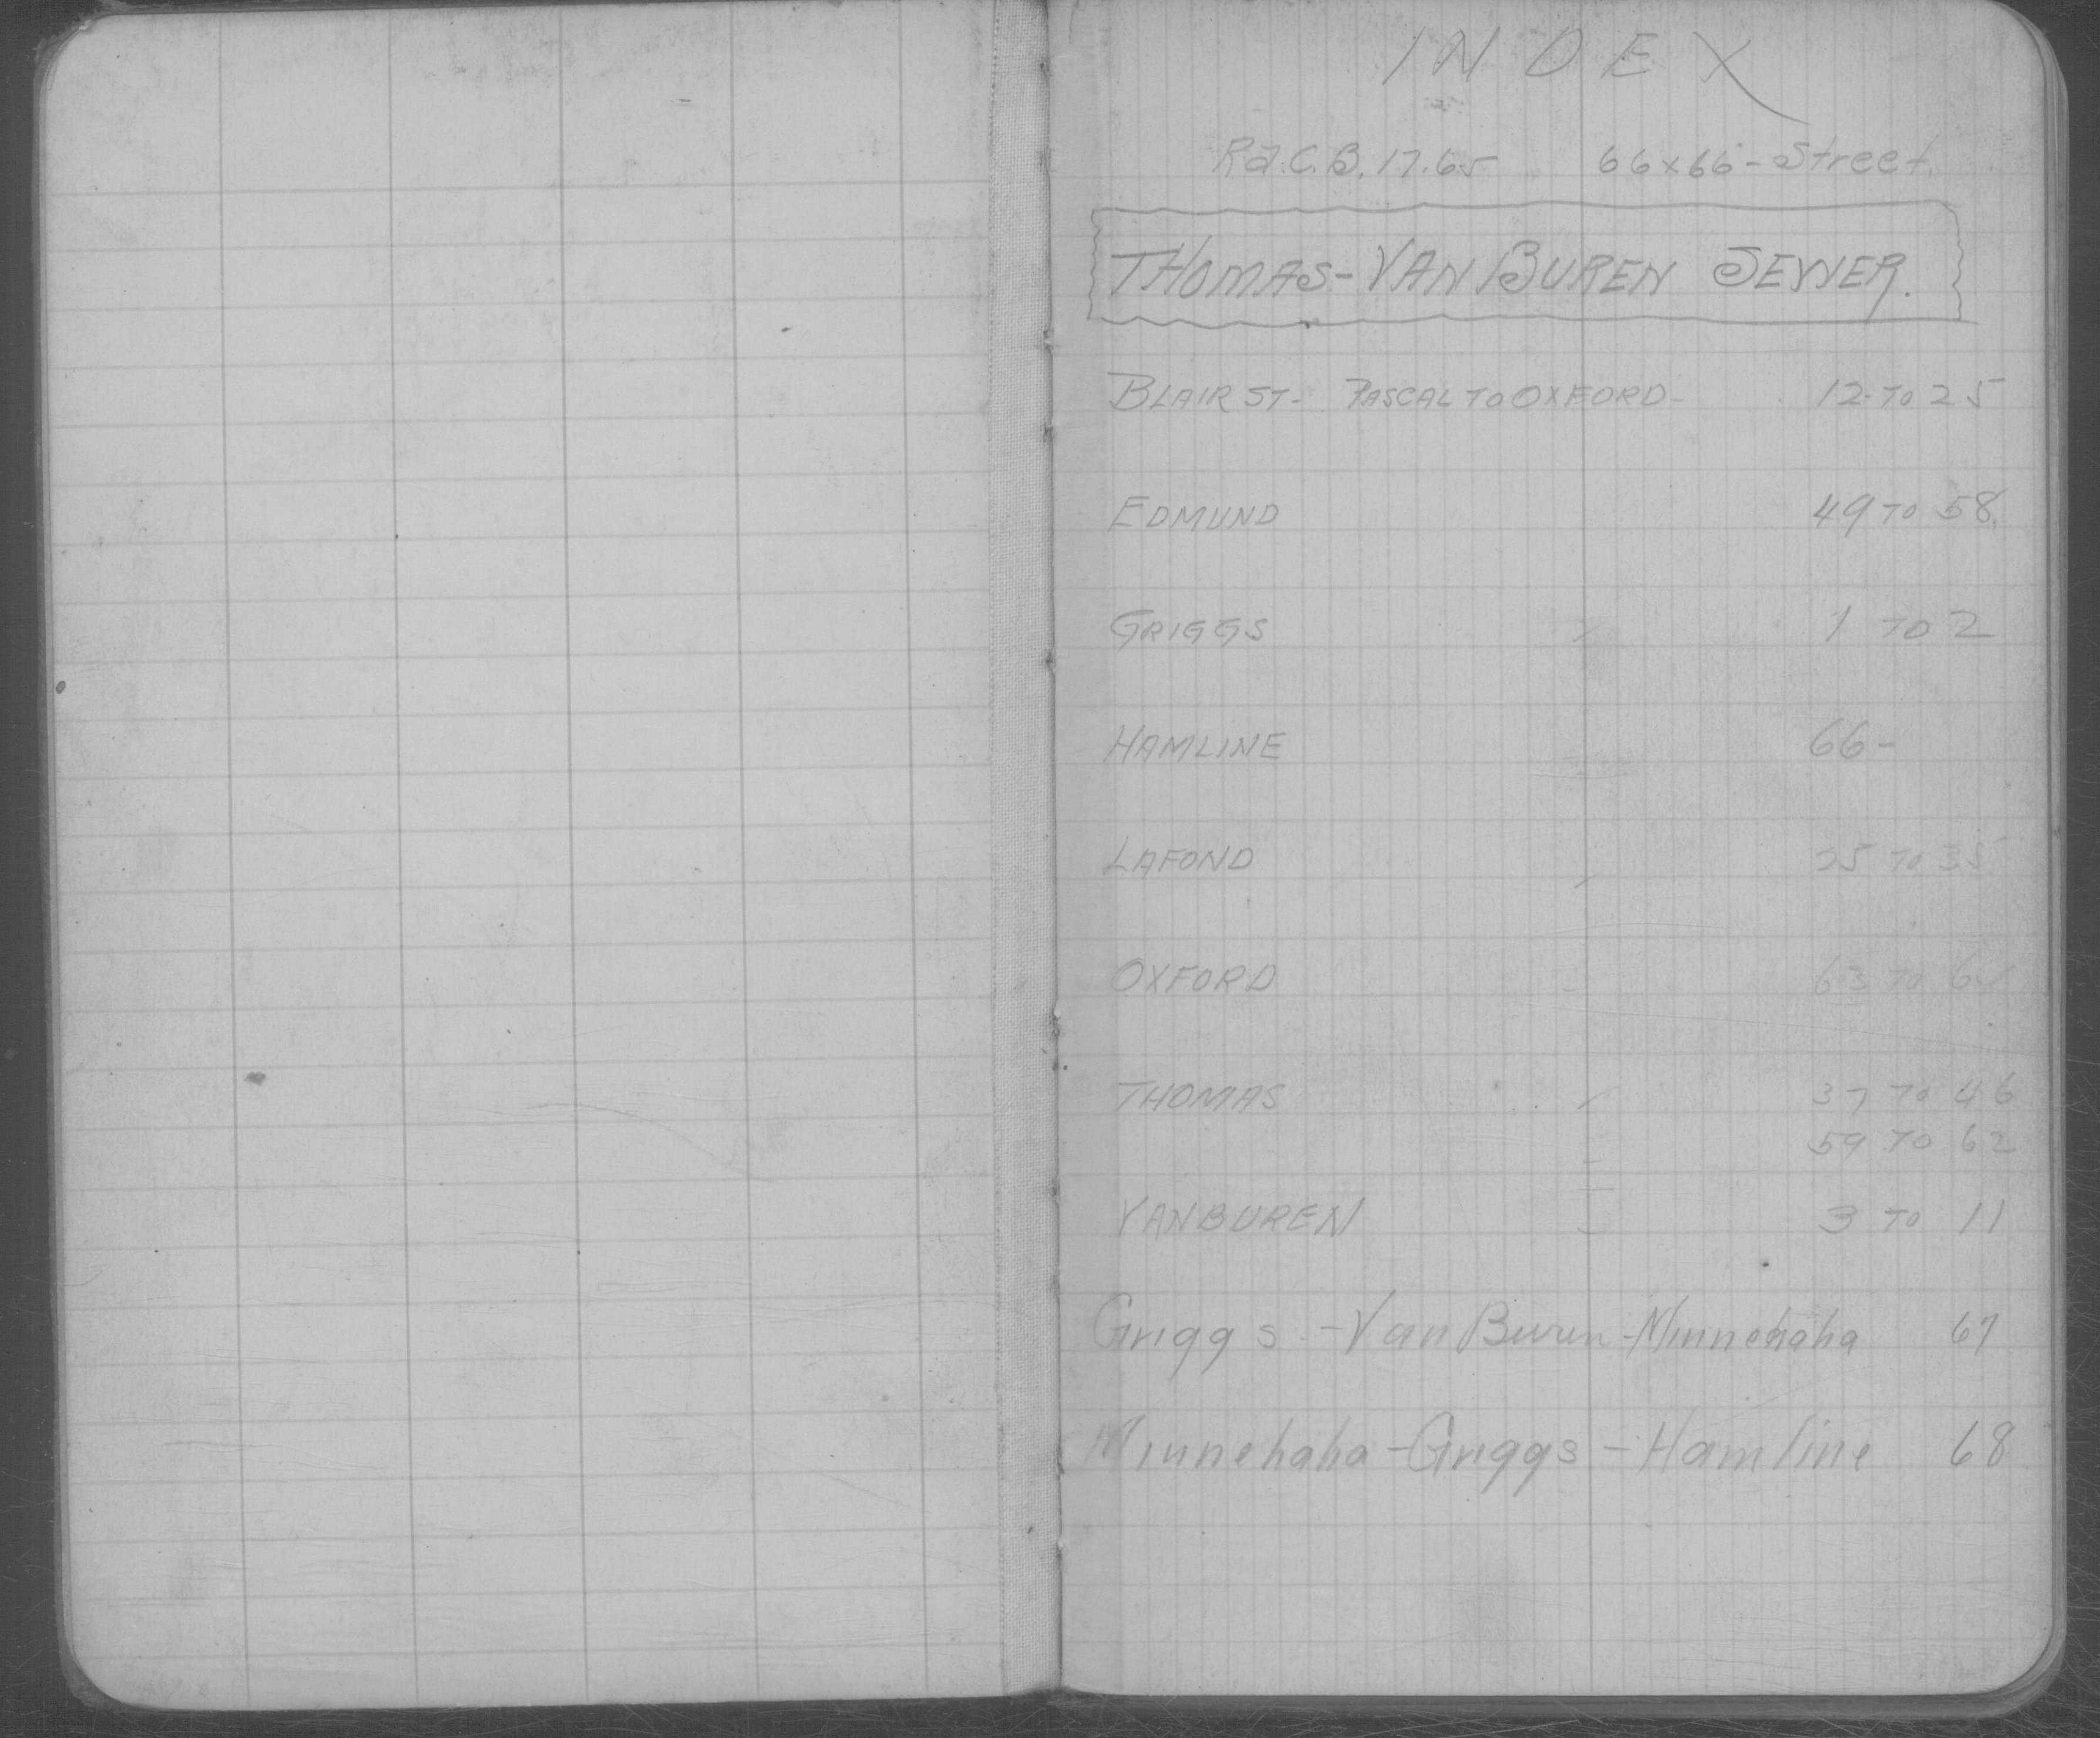 INDEX
Rd. C.B. 17.65 66x66 - Street
THOMAS - VAN BUREN SEWER.
BLAIR ST - PASCAL TO OXFORD - 12 TO 25
EDMUND 49 TO 58
GRIGGS 1 TO 2
HAMLINE 66 -
LAFOND 25 TO 35
OXFORD 63 TO
THOMAS 37 TO 46
59 TO 62
VAN BUREN 3 TO 11
Griggs - Van Buren - Minnehaha 67
Minnehaha - Griggs - Hamline 68